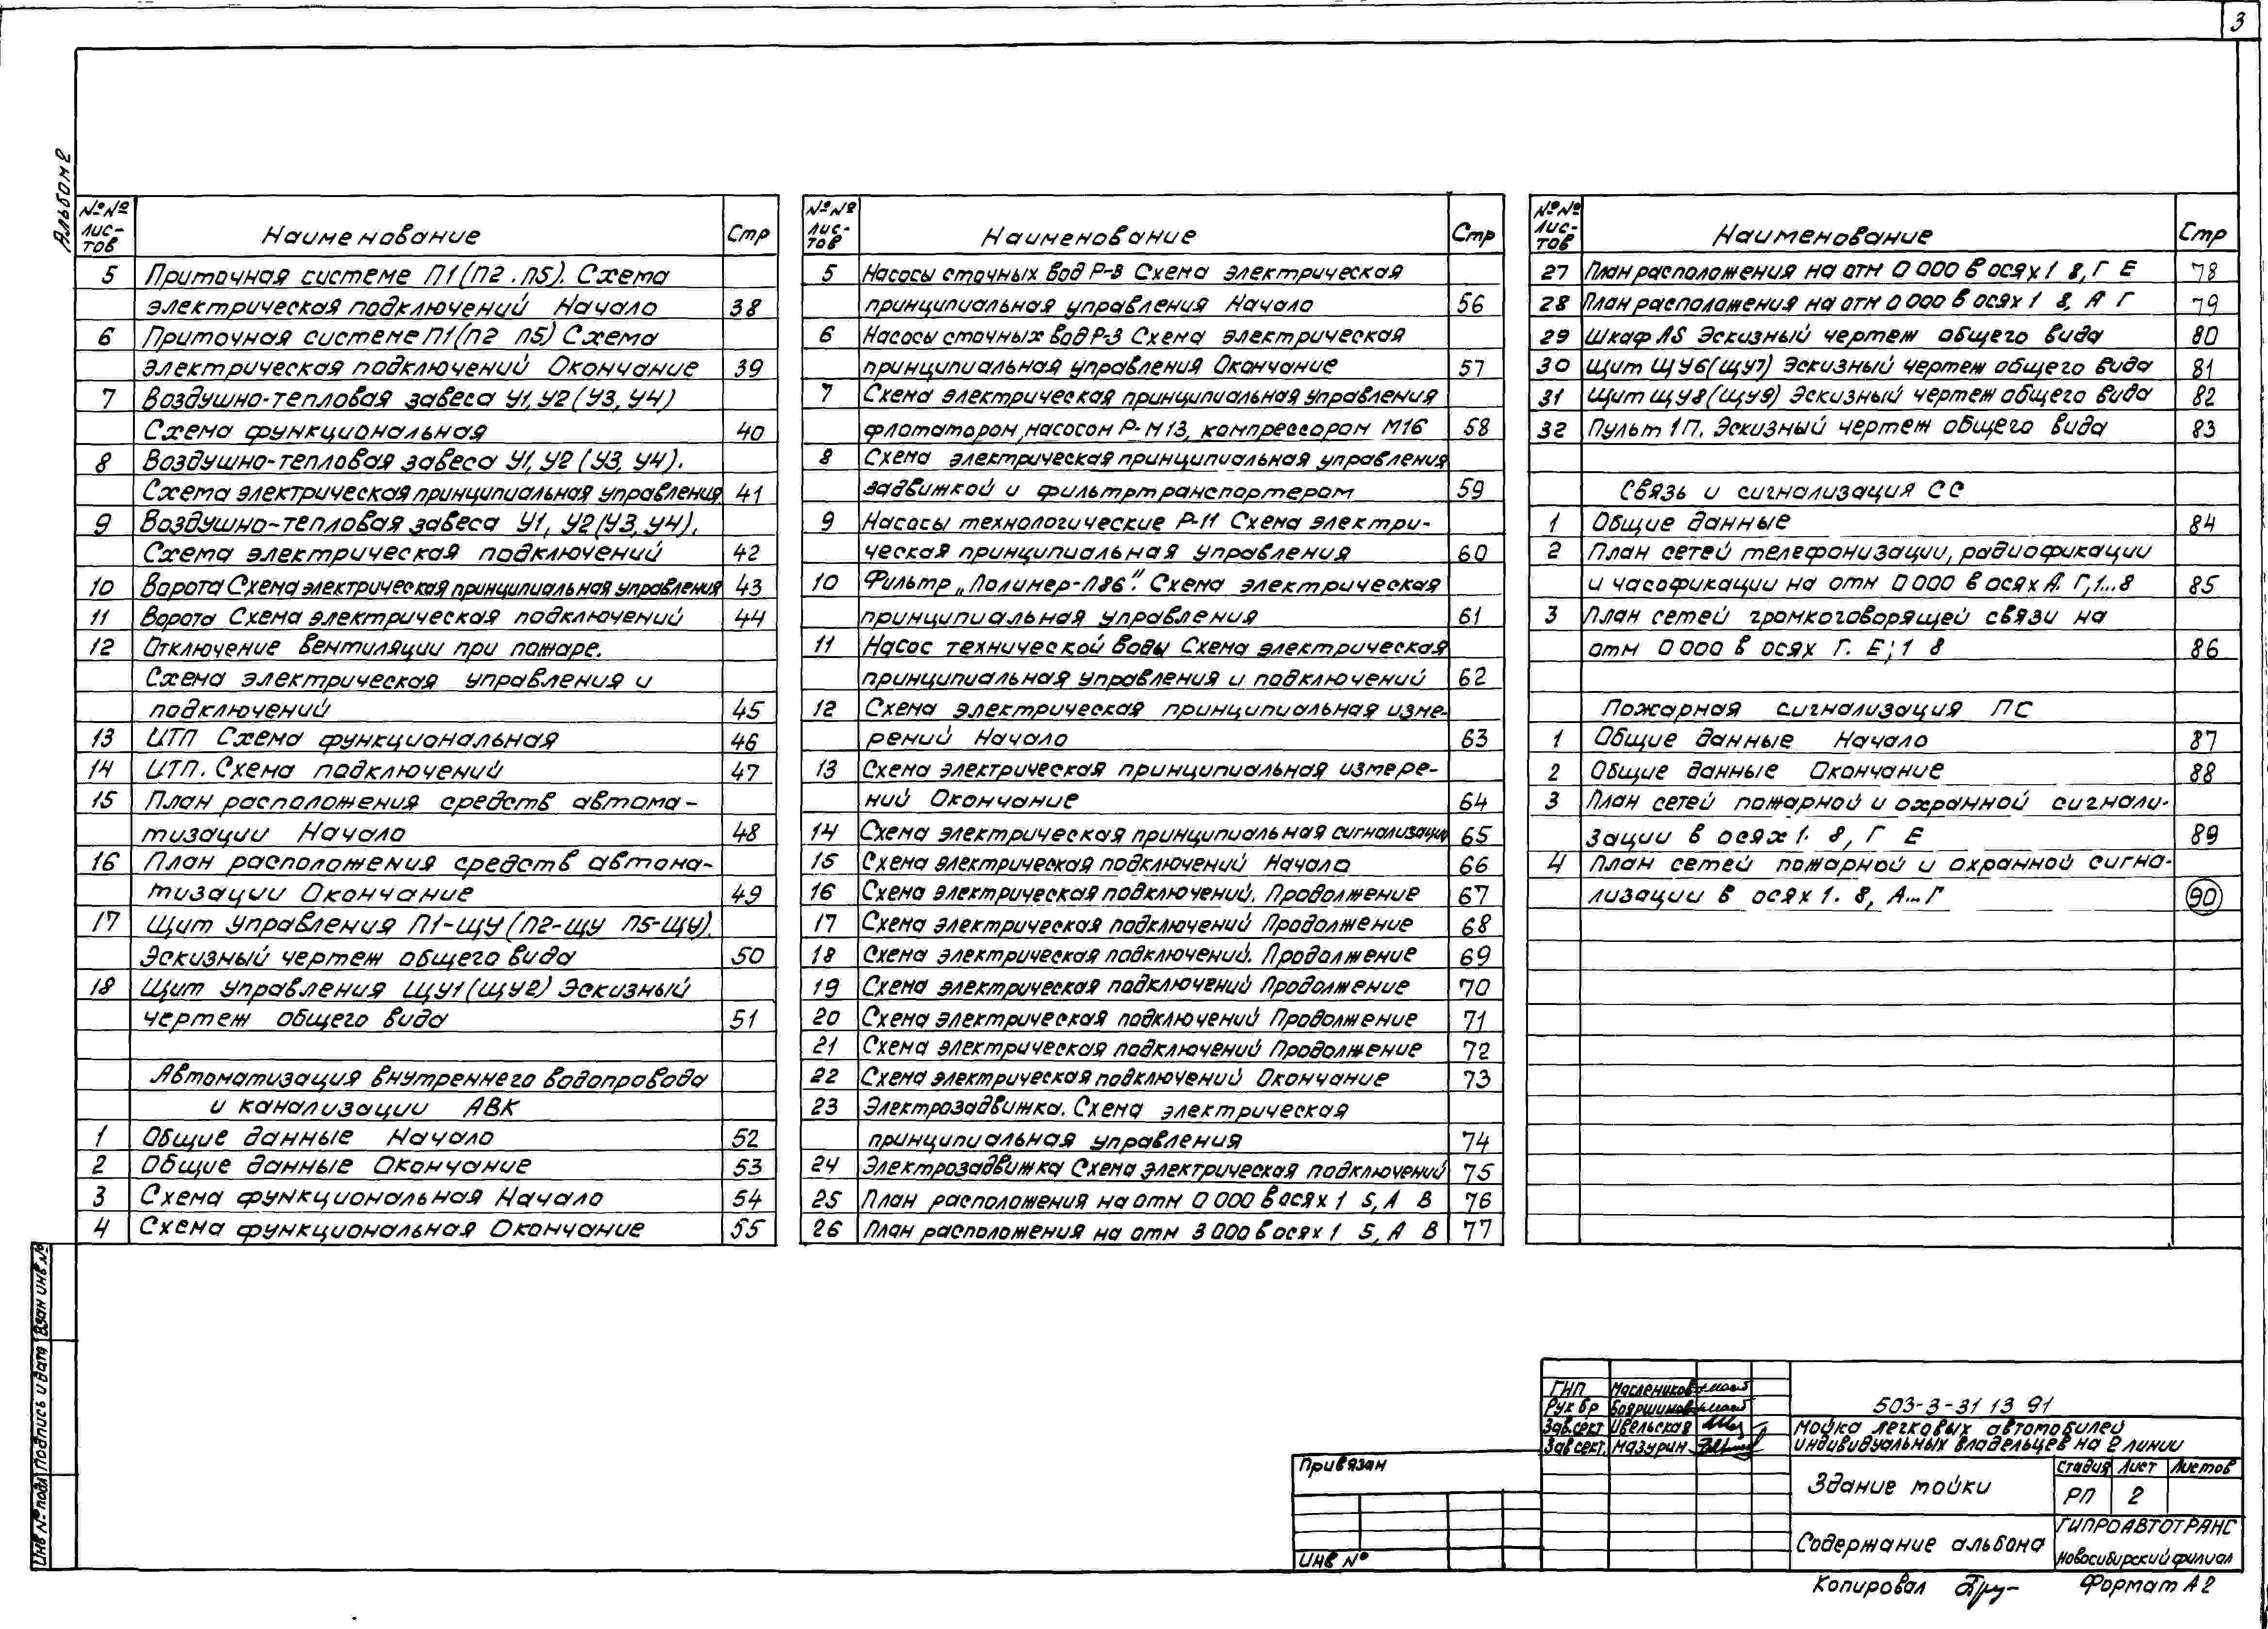 3
Альбом 2
№№ лис-тов Наименование Стр
5 Приточная системе П1(П2 . П5). Схема
электрическая подключений Начало 38
6 Приточная системе П1(П2 П5) Схема
электрическая подключений Окончание 39
7 Воздушно-тепловая завеса У1, У2 (У3, У4)
Схема функциональная 40
8 Воздушно-тепловая завеса У1, У2 (У3, У4).
Схема электрическая принципиальная управления 41
9 Воздушно-тепловая завеса У1, У2 (У3, У4).
Схема электрическая подключений 42
10 Ворота Схема электрическая принципиальная управления 43
11 Ворота Схема электрическая подключений 44
12 Отключение вентиляции при пожаре.
Схема электрическая управления и
подключений 45
13 ИТП Схема функциональная 46
14 ИТП. Схема подключений 47
15 План расположения средств автома-
тизации Начало 48
16 План расположения средств автома-
тизации Окончание 49
17 Щит управления П1-ЩУ (П2-ЩУ П5-ЩУ).
Эскизный чертеж общего вида 50
18 Щит управления ЩУ1 (ЩУ2) Эскизный
чертеж общего вида 51
Автоматизация внутреннего водопровода
и канализации АВК
1 Общие данные Начало 52
2 Общие данные Окончание 53
3 Схема функциональная Начало 54
4 Схема функциональная Окончание 55
№№ лис-тов Наименование Стр
5 Насосы сточных вод Р-8 Схема электрическая
принципиальная управления Начало 56
6 Насосы сточных вод Р-3 Схема электрическая
принципиальная управления Окончание 57
7 Схема электрическая принципиальная управления
флотатором, насосом Р-М13, компрессором М16 58
8 Схема электрическая принципиальная управления
задвижкой и фильтртранспортером 59
9 Насосы технологические Р-11 Схема электри-
ческая принципиальная управления 60
10 Фильтр „Полимер-Л86". Схема электрическая
принципиальная управления 61
11 Насос технической воды Схема электрическая
принципиальная управления и подключений 62
12 Схема электрическая принципиальная изме-
рений Начало 63
13 Схема электрическая принципиальная измере-
ний Окончание 64
14 Схема электрическая принципиальная сигнализации 65
15 Схема электрическая подключений Начало 66
16 Схема электрическая подключений. Продолжение 67
17 Схема электрическая подключений Продолжение 68
18 Схема электрическая подключений. Продолжение 69
19 Схема электрическая подключений Продолжение 70
20 Схема электрическая подключений Продолжение 71
21 Схема электрическая подключений Продолжение 72
22 Схема электрическая подключений Окончание 73
23 Электрозадвижка. Схема электрическая
принципиальная управления 74
24 Электрозадвижка Схема электрическая подключений 75
25 План расположения на отм 0 000 в осях 1 5, А В 76
26 План расположения на отм 3 000 в осях 1 5, А В 77
№№ лис-тов Наименование Стр
27 План расположения на отм 0 000 в осях 1 8, Г Е 78
28 План расположения на отм 0 000 в осях 1 8, А Г 79
29 Шкаф А5 Эскизный чертеж общего вида 80
30 Щит ЩУ6 (ЩУ7) Эскизный чертеж общего вида 81
31 Щит ЩУ8 (ЩУ9) Эскизный чертеж общего вида 82
32 Пульт 1П. Эскизный чертеж общего вида 83
Связь и сигнализация СС
1 Общие данные 84
2 План сетей телефонизации, радиофикации
и часофикации на отм 0 000 в осях А. Г, 1...8 85
3 План сетей громкоговорящей связи на
отм 0 000 в осях Г. Е; 1 8 86
Пожарная сигнализация ПС
1 Общие данные Начало 87
2 Общие данные Окончание 88
3 План сетей пожарной и охранной сигнали-
зации в осях 1. 8, Г Е 89
4 План сетей пожарной и охранной сигна-
лизации в осях 1. 8, А...Г 90
Инв № подл Подпись и дата Взам инв №
Привязан
Инв №
ГИП Маслеников
Рук бр Бояршинов
Зав.сект Ивельская
Зав сект. Мазурин
503-3-31 13 91
Мойка легковых автомобилей
индивидуальных владельцев на 2 линии
Здание мойки
Стадия Лист Листов
РП 2
Содержание альбома
ГИПРОАВТОТРАНС
Новосибирский филиал
Копировал
Формат А2